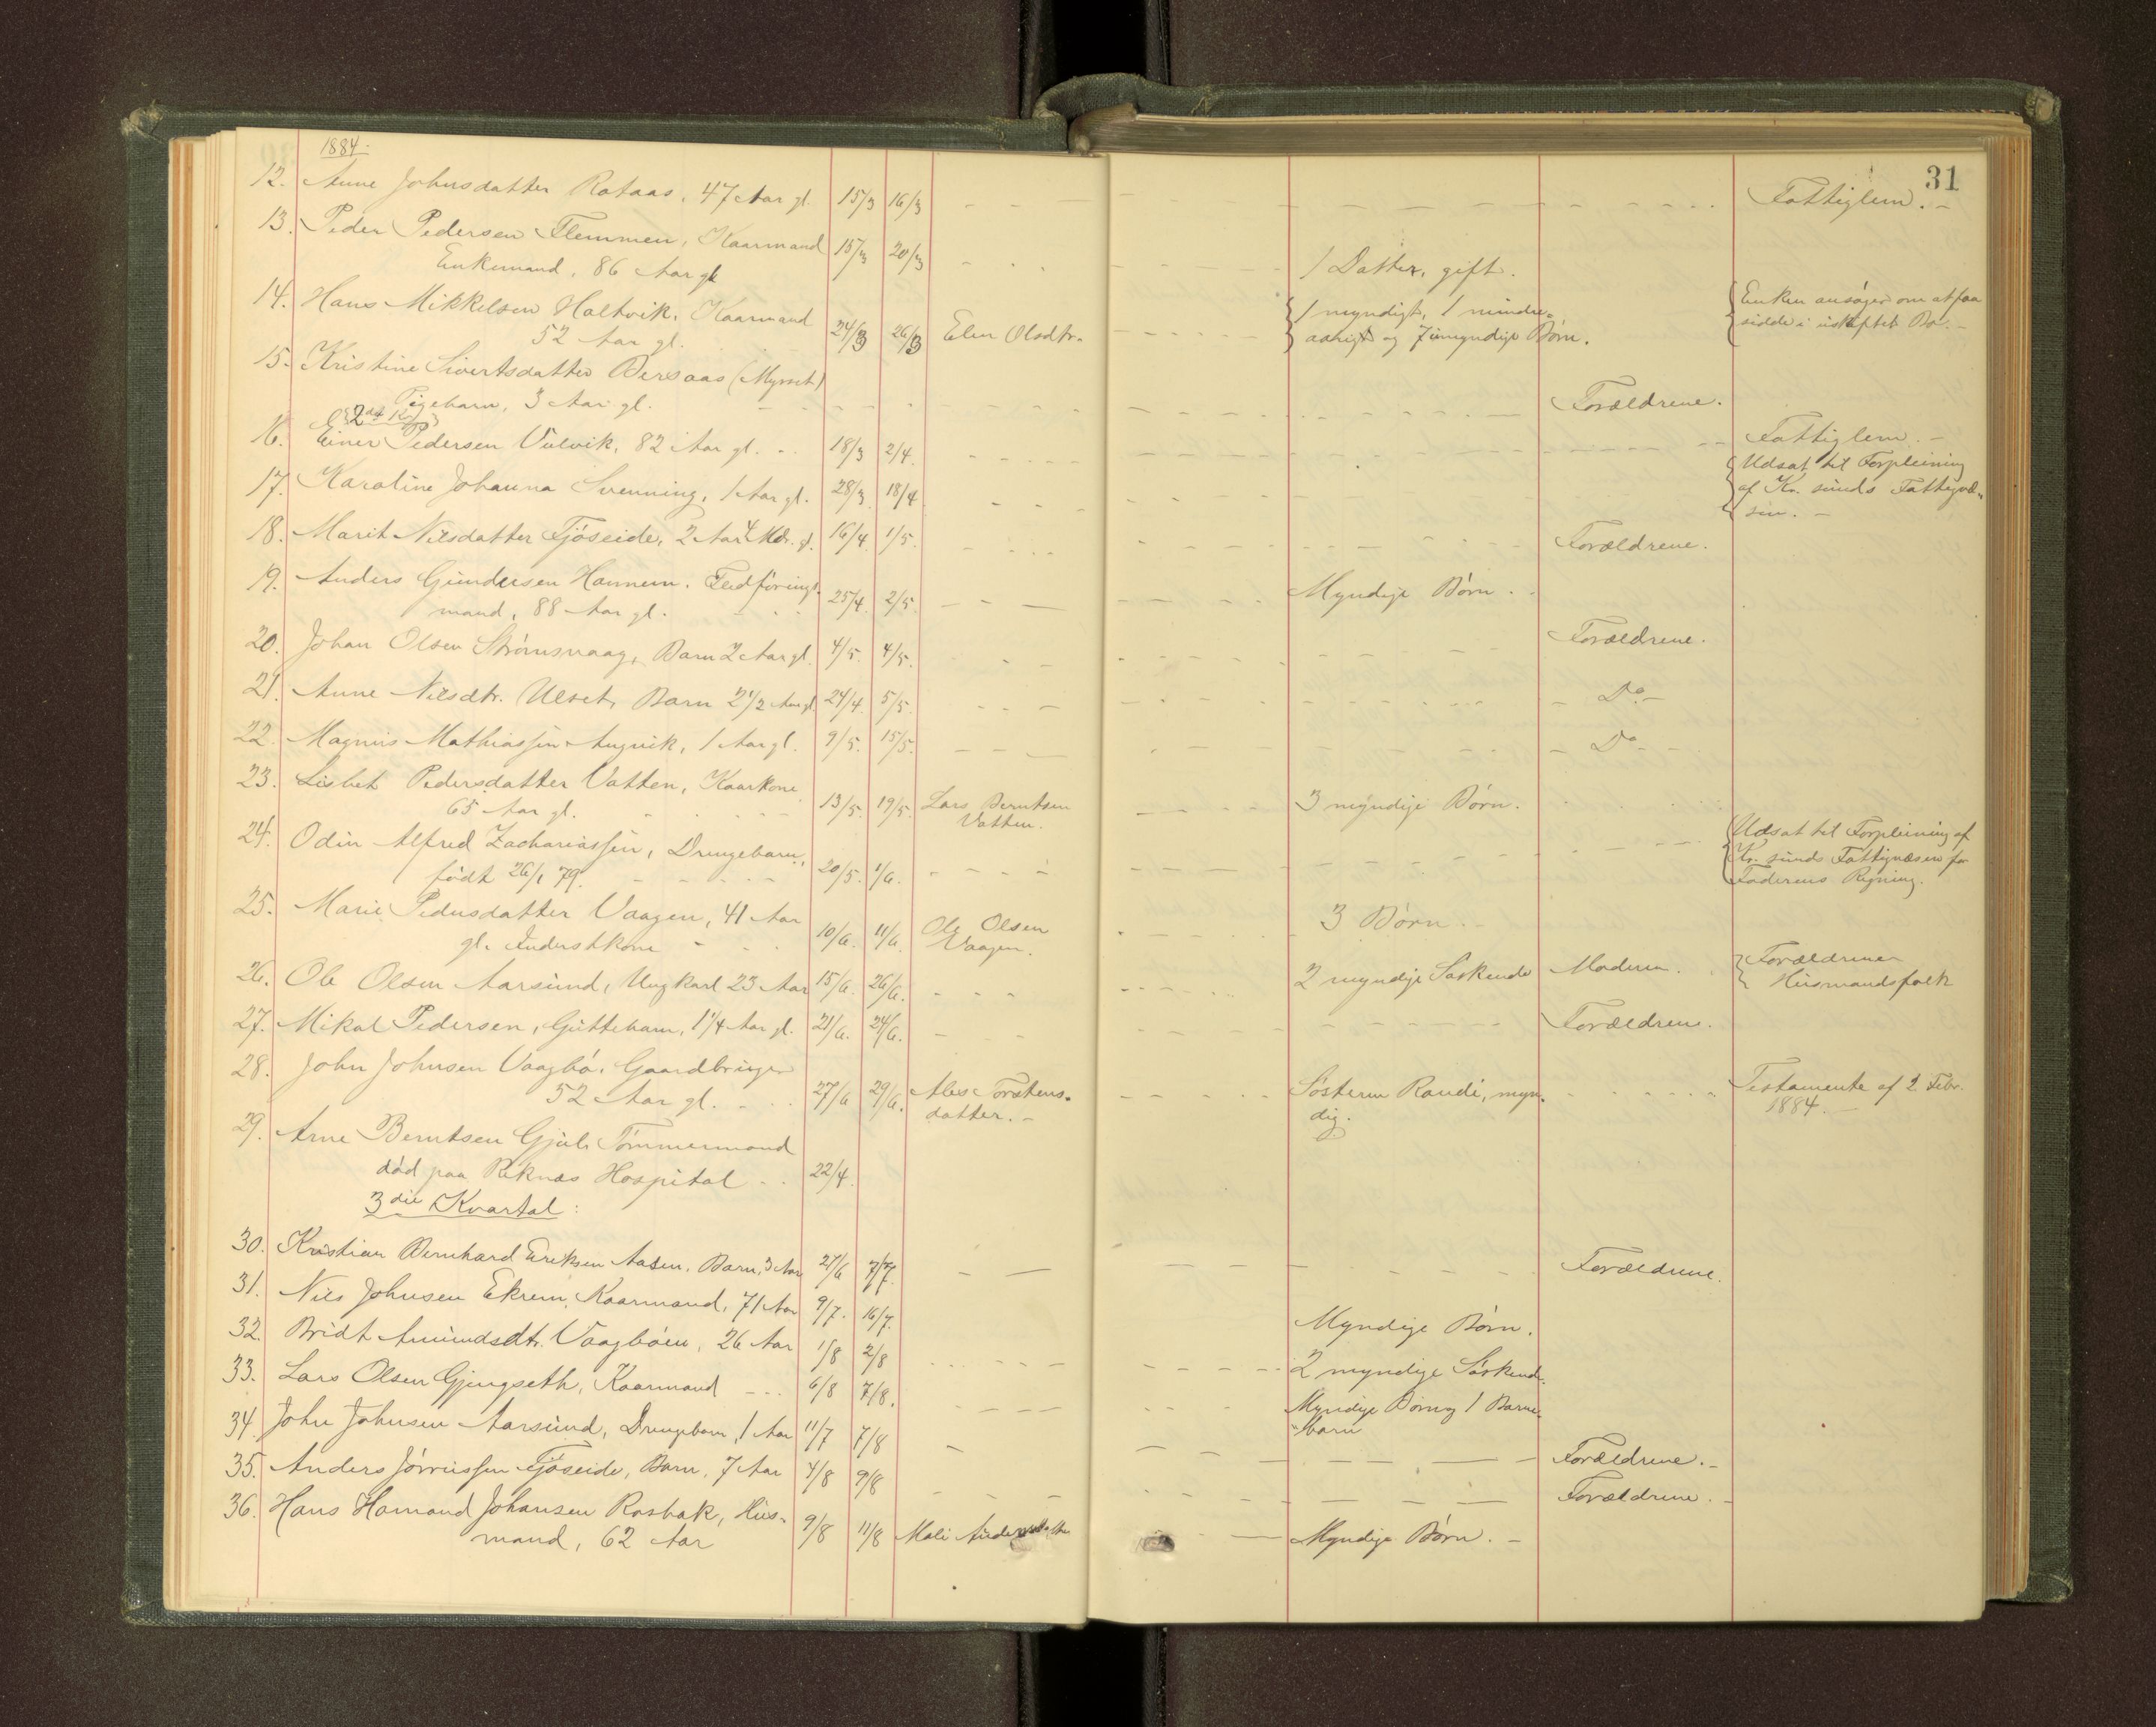 1884.
31
12. Anne Johnsdatter Rotaas, 47 Aar gl. 15/3 16/3 Fattiglem.
13. Peder Pedersen Flemmen, Kaarmand
Enkemand, 86 Aar gl 15/3 20/3 1 Datter, gift.
14. Hans Mikkelsen Holtvik, Kaarmand
52 Aar gl. 24/3 26/3 Elen Olsdtr.
1 myndigt, 1 mindre-
aarigt og 7 umyndige Børn.
Enken ansøger om at faa
sidde i uskiftet Bo.
15. Kristine Sivertsdatter Bersaas (Myrset)
Pigebarn, 3 Aar gl. Forældrene.
2det K
16. Einer Pedersen Vulvik, 82 Aar gl. 18/3 2/4. Fattiglem.
17. Karoline Johanna Svenning, 1 Aar gl. 28/3 18/4
Udsat til Forpleining
af Kr. sunds Fattigvæ-
sen.
18. Marit Nilsdatter Fjøseide, 2 Aar 4 Mdr. gl. 16/4 1/5. Forældrene.
19. Anders Gundersen Hannem. Fledførings-
mand, 88 Aar gl. 25/4. 2/5. Myndige Børn.
20. Johan Olsen Strømsvaag, Barn 2 Aar gl. 4/5. 4/5. Forældrene.
21. Anne Nilsdtr. Ulset, Barn 2 1/2 Aar gl. 24/4. 5/5. Do
22. Magnus Mathiassen Angvik, 1 Aar gl. 9/5. 15/5. Do
23. Lisbet Pedersdatter Vatten, Kaarkone
65 Aar gl. 13/5. 19/5. Lars Berntsen
Vatten. 3 myndige Børn.
24. Odin Alfred Zachariassen, Drengebarn,
født 26/1 79. 20/5. 1/6.
Udsat til Forpleining af
Kr. sunds Fattigvæsen for
Faderens Regning.
25. Marie Pedersdatter Vaagen, 41 Aar
gl. Inderstkone 10/6. 11/6. Ole Olsen
Vaagen. 3 Børn.
26. Ole Olsen Aarsund, Ungkarl 23 Aar 15/6. 26/6. 2 myndige Søskende Moderen. Forældrene
Husmandsfolk
27. Mikal Pedersen, Guttebarn, 1 1/4 Aar gl. 21/6. 24/6. Forældrene.
28. John Johnsen Vaagbø, Gaardbruger
52 Aar gl. 27/6 29/6. Ales Torstens-
datter. Søsteren Randi, myn-
dig. Testamente af 2 Febr.
1884.
29. Arne Berntsen Gjul, Tømmermand
død paa Reknæs Hospital 22/4.
3die Kvartal:
30. Kristian Bernhard Eriksen Aasen, Barn, 3 Aar 27/6 7/7. Forældrene.
31. Nils Johnsen Ekrem, Kaarmand, 71 Aar 9/7. 16/7. Myndige Børn.
32. Bridt Amundsdtr. Vaagbøen, 26 Aar 1/8 2/8 2 myndige Søskende.
33. Lars Olsen Gjengseth, Kaarmand 6/8 7/8. Myndige Børn og 1 Barne-
barn
34. John Johnsen Aarsund, Drengebarn, 1 Aar 11/7 7/8 Forældrene.
35. Anders Jørnissen Fjøseide, Barn, 7 Aar 4/8 9/8 Forældrene.
36. Hans Hamand Johansen Rosbak, Hus-
mand, 62 Aar 9/8 11/8 Mali Andersdatter Myndige Børn.